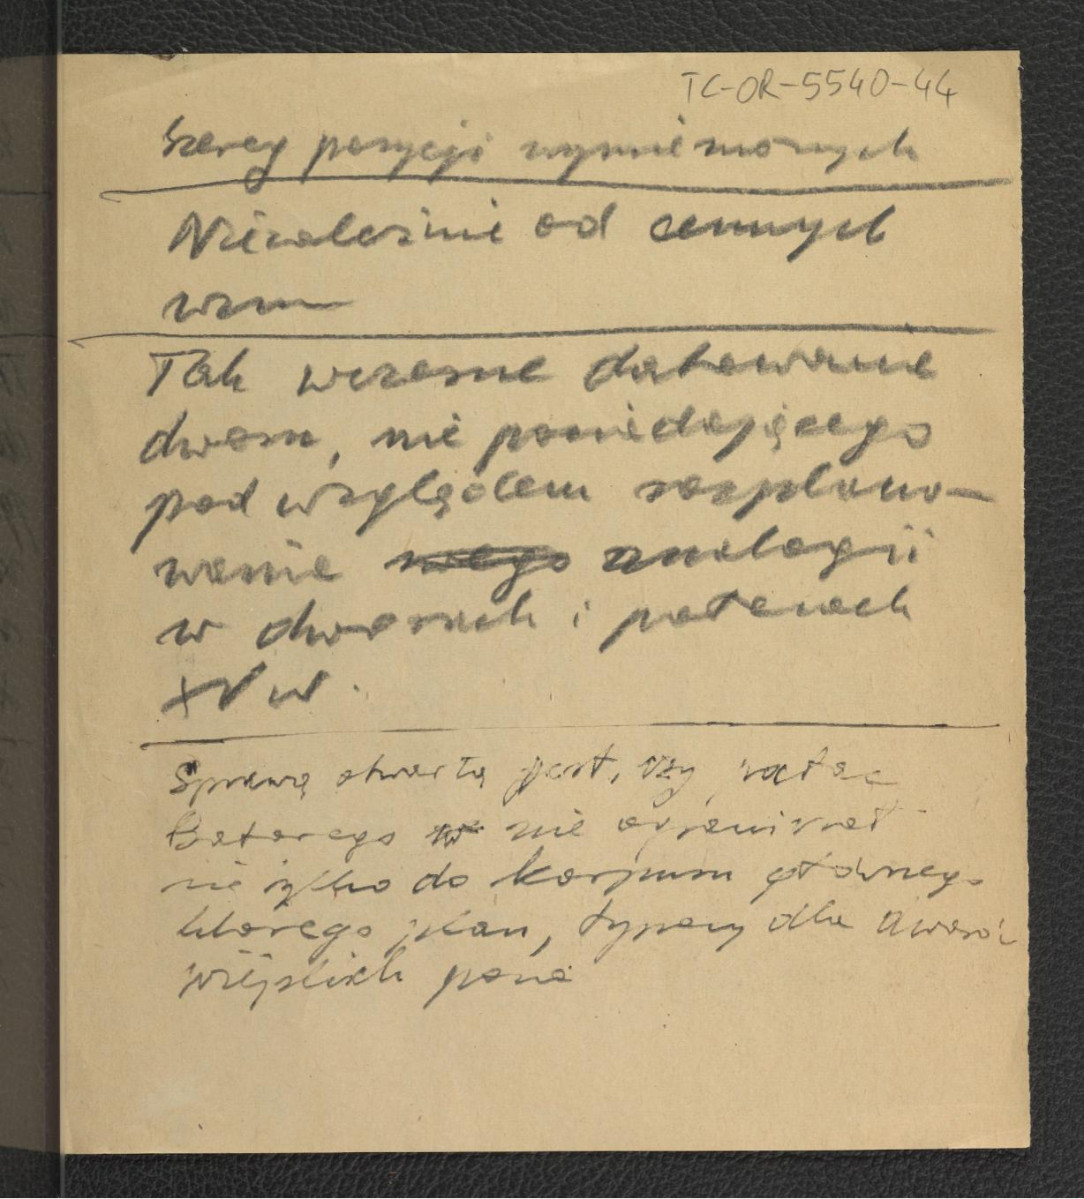 TC-OR-5540-44
Szereg pozycji wymienionych
Niezależnie od cennych
wzm
Tak wczesne datowanie
dworu, nie posiadającego
pod względem rozplano-
wania analogii
w dworach i pałacach
XV w.
Sprawą otwartą jest, czy pałac
Batorego nie ograniczał
się tylko do korpusu głównego
którego plan, typowy dla dworów
wiejskich